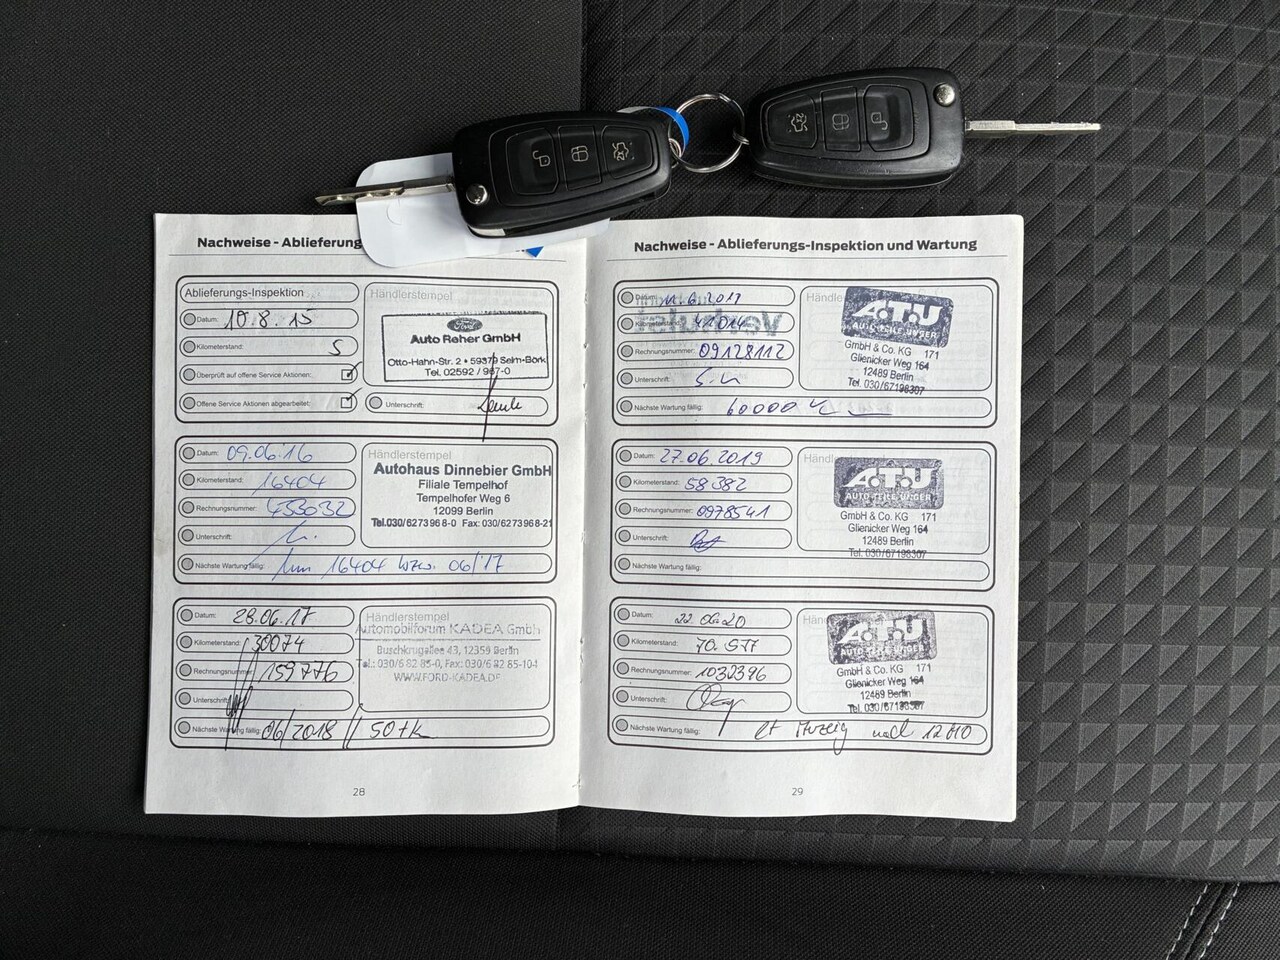 Nachweise - Ablieferung
Ablieferungs-Inspektion
Händlerstempel
Datum: 10.8.15
Ford
Auto Reher GmbH
Otto-Hahn-Str. 2 • 59379 Selm-Bork
Tel. 02592 / 967-0
Kilometerstand: 5
Überprüft auf offene Service Aktionen:
Offene Service Aktionen abgearbeitet:
Unterschrift:
Datum: 09.06.16
Händlerstempel
Autohaus Dinnebier GmbH
Filiale Tempelhof
Tempelhofer Weg 6
12099 Berlin
Tel.030/6273968-0 Fax: 030/6273968-21
Kilometerstand: 16404
Rechnungsnummer: 453032
Unterschrift:
Nächste Wartung fällig: 16404 bzw. 06/17
Datum: 28.06.17
Händlerstempel
Automobilforum KADEA GmbH
Buschkrugallee 43, 12359 Berlin
Tel.: 030/6 82 85-0, Fax: 030/6 82 85-104
WWW.FORD-KADEA.DE
Kilometerstand: 30074
Rechnungsnummer: 159776
Unterschrift:
Nächste Wartung fällig: 06/2018 // 50tk
28
Nachweise - Ablieferungs-Inspektion und Wartung
Datum:
Händle
A.T.U
AUTO-TEILE-UNGER
GmbH & Co. KG 171
Glienicker Weg 164
12489 Berlin
Tel. 030/67198307
Kilometerstand: 41014
Rechnungsnummer: 09128112
Unterschrift:
Nächste Wartung fällig: 60000
Datum: 27.06.2019
Händle
A.T.U
AUTO-TEILE-UNGER
GmbH & Co. KG 171
Glienicker Weg 164
12489 Berlin
Tel. 030/67198307
Kilometerstand: 58382
Rechnungsnummer: 0978541
Unterschrift:
Nächste Wartung fällig:
Datum: 22.06.20
Händ
A.T.U
AUTO-TEILE-UNGER
GmbH & Co. KG 171
Glienicker Weg 164
12489 Berlin
Tel. 030/67198307
Kilometerstand: 70.577
Rechnungsnummer: 1032396
Unterschrift:
Nächste Wartung fällig: lt Anzeig
29